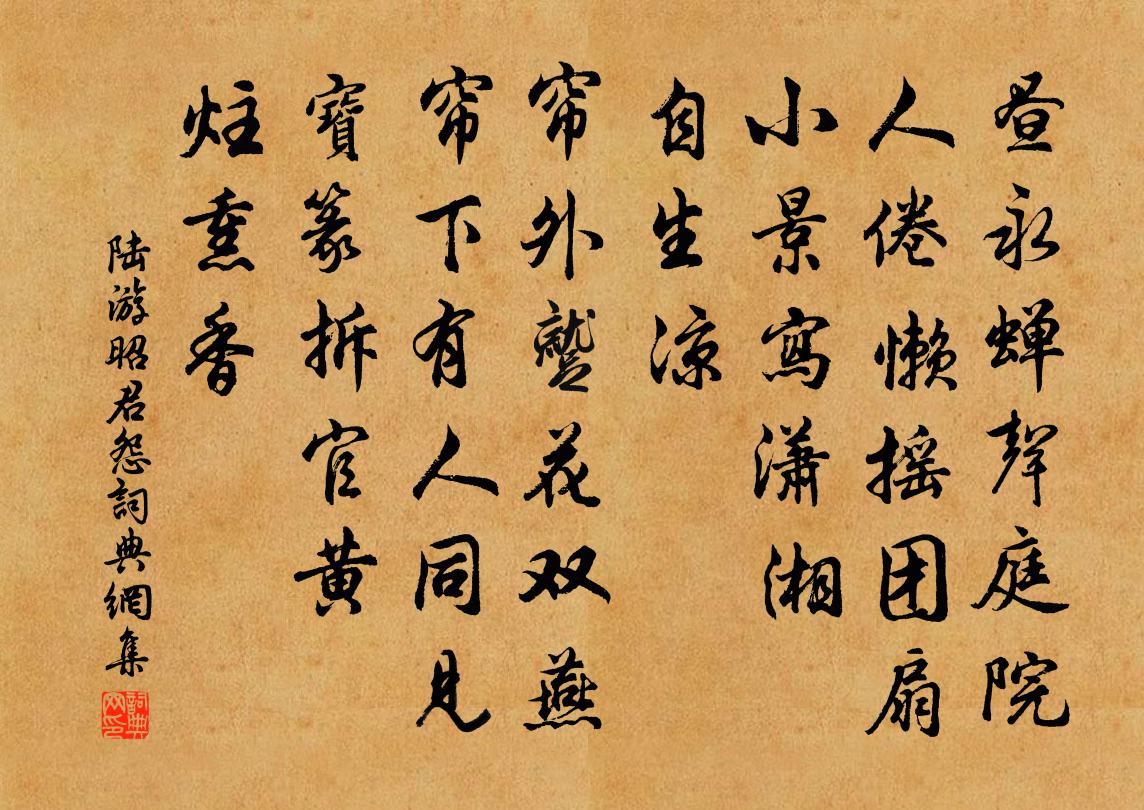 昼永蝉声庭院
人倦懒摇团扇
小景寫瀟湘
自生凉
帘外蹵花双燕
帘下有人同见
寶篆拆官黄
炷熏香
陆游昭君怨詞典網集
詞典网印